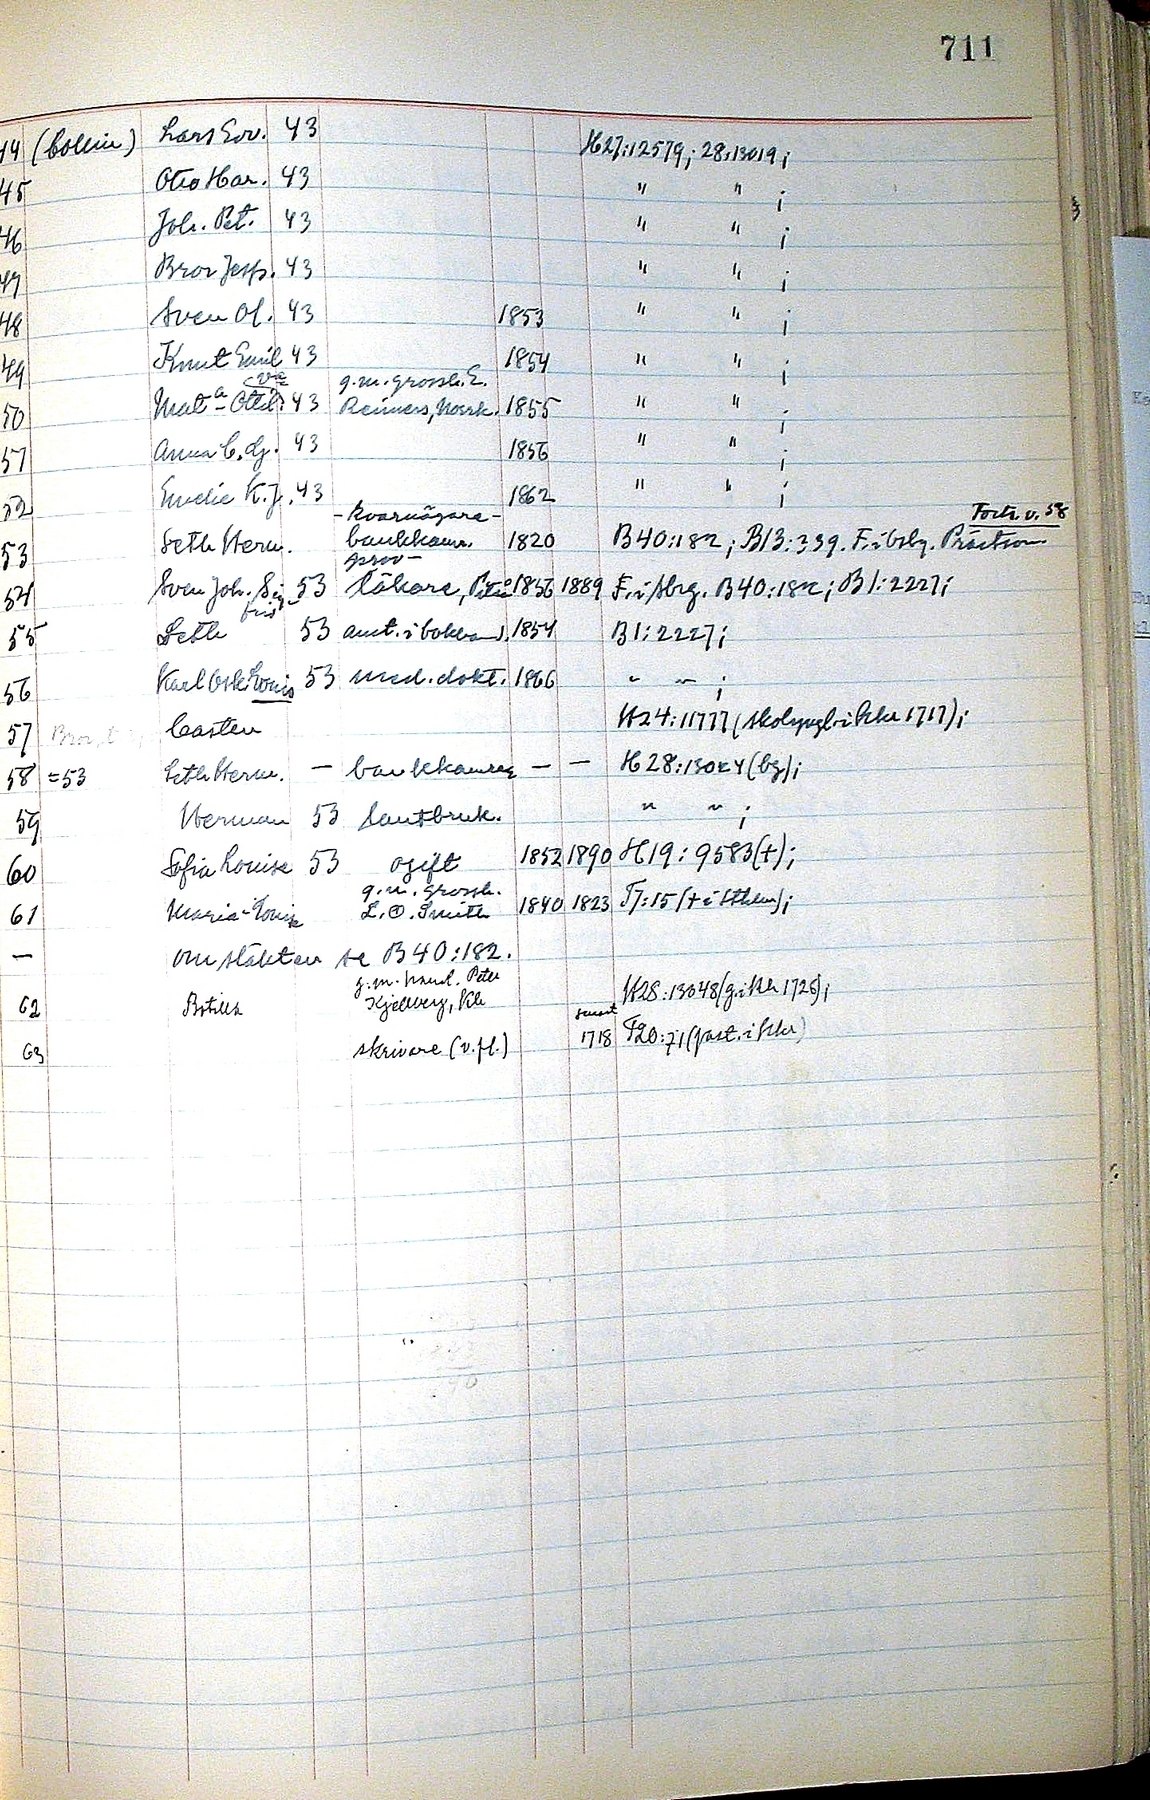 711
44 (Collin) Lars Edv. 43 H27:12579; 28:13019;
45 Otto Har. 43 " " ;
46 Joh. Pet. 43 " " ;
47 Bror Jesp. 43 " " ;
48 Sven Ol. 43 1853 " " ;
49 Knut Emil 43 1854 " " ;
g.m. grossh. E.
50 Mat:a Otil: 43 Reimers, Norrk. 1855 " " ;
51 Anna C. 43 1856 " " ;
52 Emelie K.J. 43 1862 " " ;
- kvarnägare - Forts. v. 58
53 Seth Herm. bankkamr. 1820 B40:182; B13:339. F. i Gbg.
54 Sven Joh. Sig- 53 läkare, 1856 1889 F. i Hbg. B40:182; B1:2227;
frid
55 Seth 53 anst. i bokhand. 1854 B1:2227;
56 Karl Osk. Louis 53 med. dokt. 1866 " " ;
57 Casten H24:11777 (skolyngl. i Khr 1717);
58 =53 Seth Herm. — bankkamrer — — H28:13024 (bg);
59 Herman 53 lantbruk. " " ;
60 Sofia Louise 53 ogift 1852 1890 H19:9583 (+);
g.m. grossh.
61 Maria-Louis L.O. Smith 1840 1823 T7:15 (+ i Sthlm);
— om släkten se B40:182.
g.m. hand. Peter
62 Botilla Kjellberg, Kh H28:13048 (g. i Khr 1726);
senast
63 skrivare (v. fl.) 1718 F20:71 (gast. i Khr)